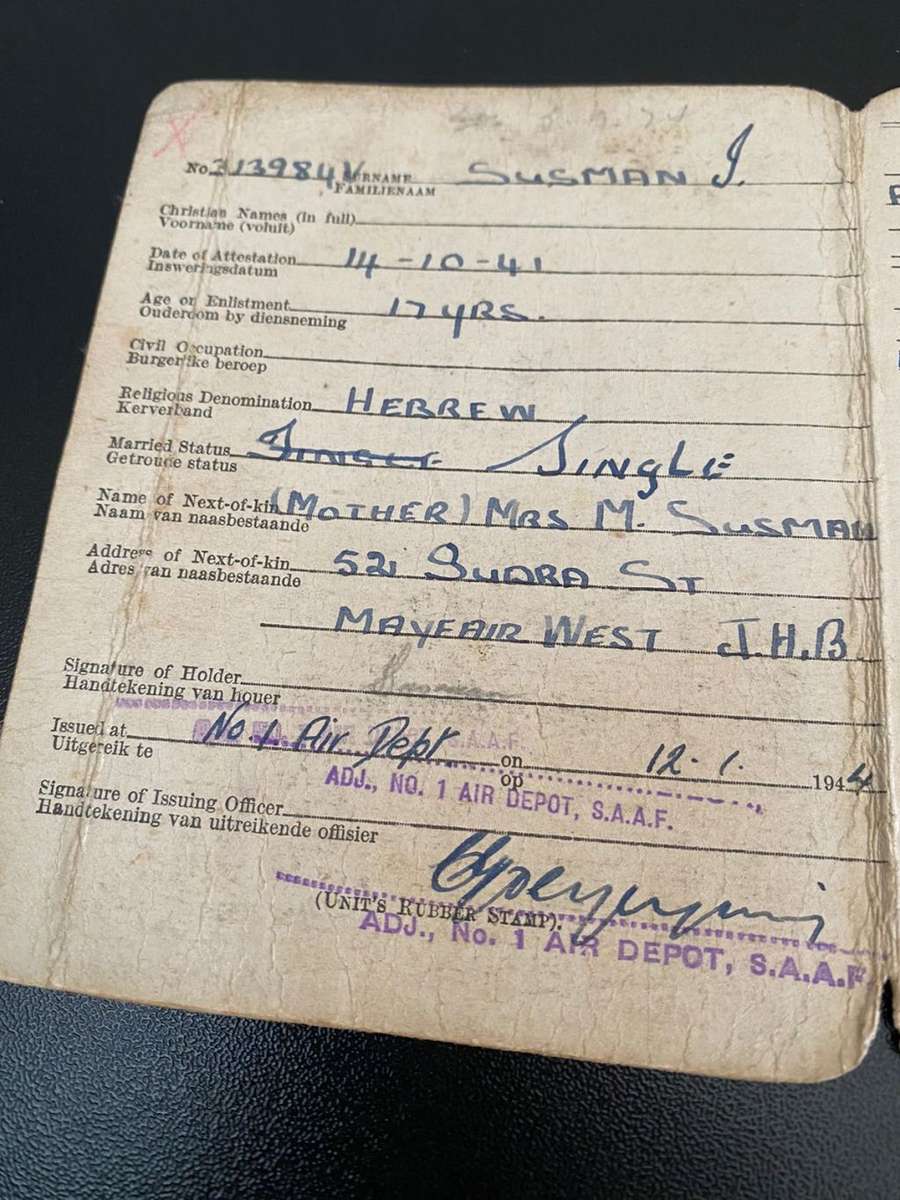 No. 313984V SURNAME SUSMAN J.
FAMILIENAAM
Christian Names (in full)
Voorname (voluit)
Date of Attestation 14-10-41
Insweringsdatum
Age on Enlistment 17 YRS.
Ouderdom by diensneming
Civil Occupation
Burgerlike beroep
Religious Denomination HEBREW
Kerverband
Married Status SINGLE SINGLE
Getroude status
Name of Next-of-kin (MOTHER) MRS M. SUSMAN
Naam van naasbestaande
Address of Next-of-kin 52 ST
Adres van naasbestaande
MAYFAIR WEST J.H.B
Signature of Holder Susman
Handtekening van houer
Issued at No. 1 Air Dept on 12.1. 1944
Uitgereik te op
ADJ., NO. 1 AIR DEPOT, S.A.A.F.
Signature of Issuing Officer
Handtekening van uitreikende offisier
(UNIT'S RUBBER STAMP).
ADJ., No. 1 AIR DEPOT, S.A.A.F